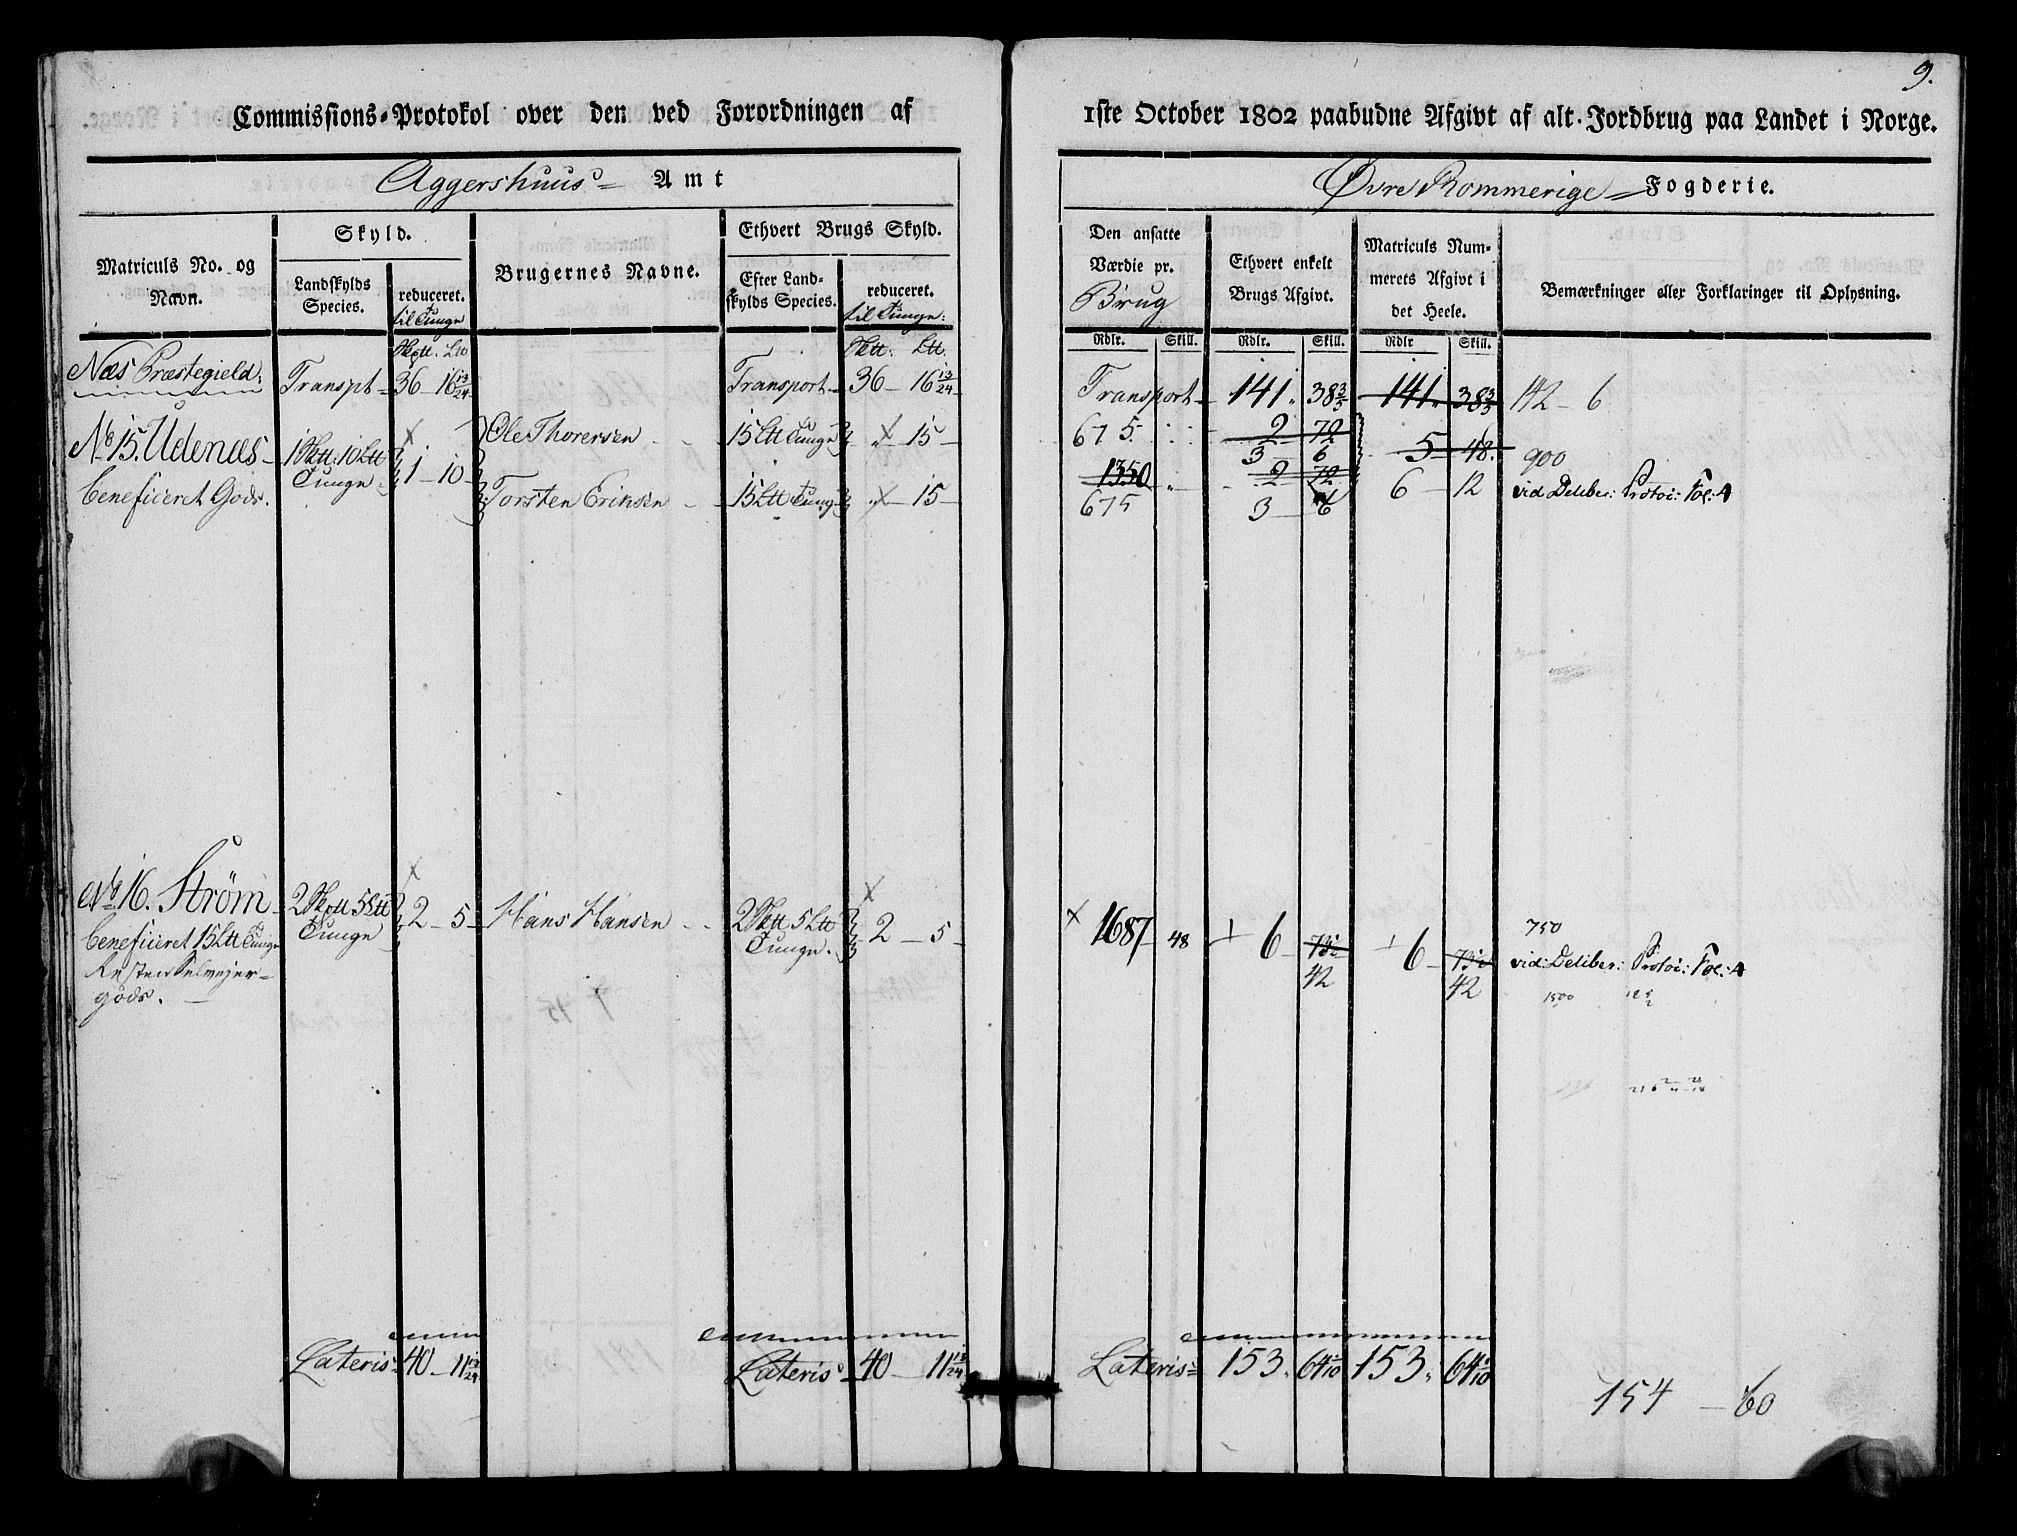 9.
Commissions-Protokol over den ved Forordningen af 1ste October 1802 paabudne Afgivt af alt Jordbrug paa Landet i Norge.
Aggershuus Amt
Øvre Rommerige Fogderie.
Matriculs No. og Navn.
Skyld.
Landskylds Species.
reduceret. til Tunge
Brugernes Navne.
Ethvert Brugs Skyld.
Efter Landskylds Species.
reduceret. til Tunge:
Den ansatte Værdie pr. Brug
Ethvert enkelt Brugs Afgivt.
Matriculs Nummerets Afgivt i det Heele.
Bemærkninger eller Forklaringer til Oplysning.
Rdlr. Skill. Rdlr. Skill. Rdlr Skill.
Næs Præstegield. Transpt 36 - 16 13/24 Transport 36 - 16 13/24 Transport 141. 38 3/5 141. 38 3/5 142 - 6
No 15. Udenæs 1 Sktt. 10 Ltt Tunge 1 - 10 Ole Thorersen 15 Ltt Tunge " 15 675. 2 72 5 - 48. 900
3 6
beneficeret Gods. Torsten Erichsen 15 Ltt Tunge " 15 1350 " 2 72 6 - 12 vid: Deliber: Protoc: Fol: 4
675 3 6
No 16. Strøm 2 Sktt 5 Ltt Tunge 2 - 5 Hans Hansen 2 Sktt 5 Ltt Tunge. 2 - 5 1687 48 6 - 73½ 6 - 73½ 750
42 42 vid: Deliber: Protoc: Fol: 4
beneficeret 15 Ltt Tunge
Resten Selvejer-
gods.
1500
Lateris 40 - 11 13/24 Lateris 40 - 11 13/24 Lateris 153. 64 1/10 153. 64 1/10
154 - 60